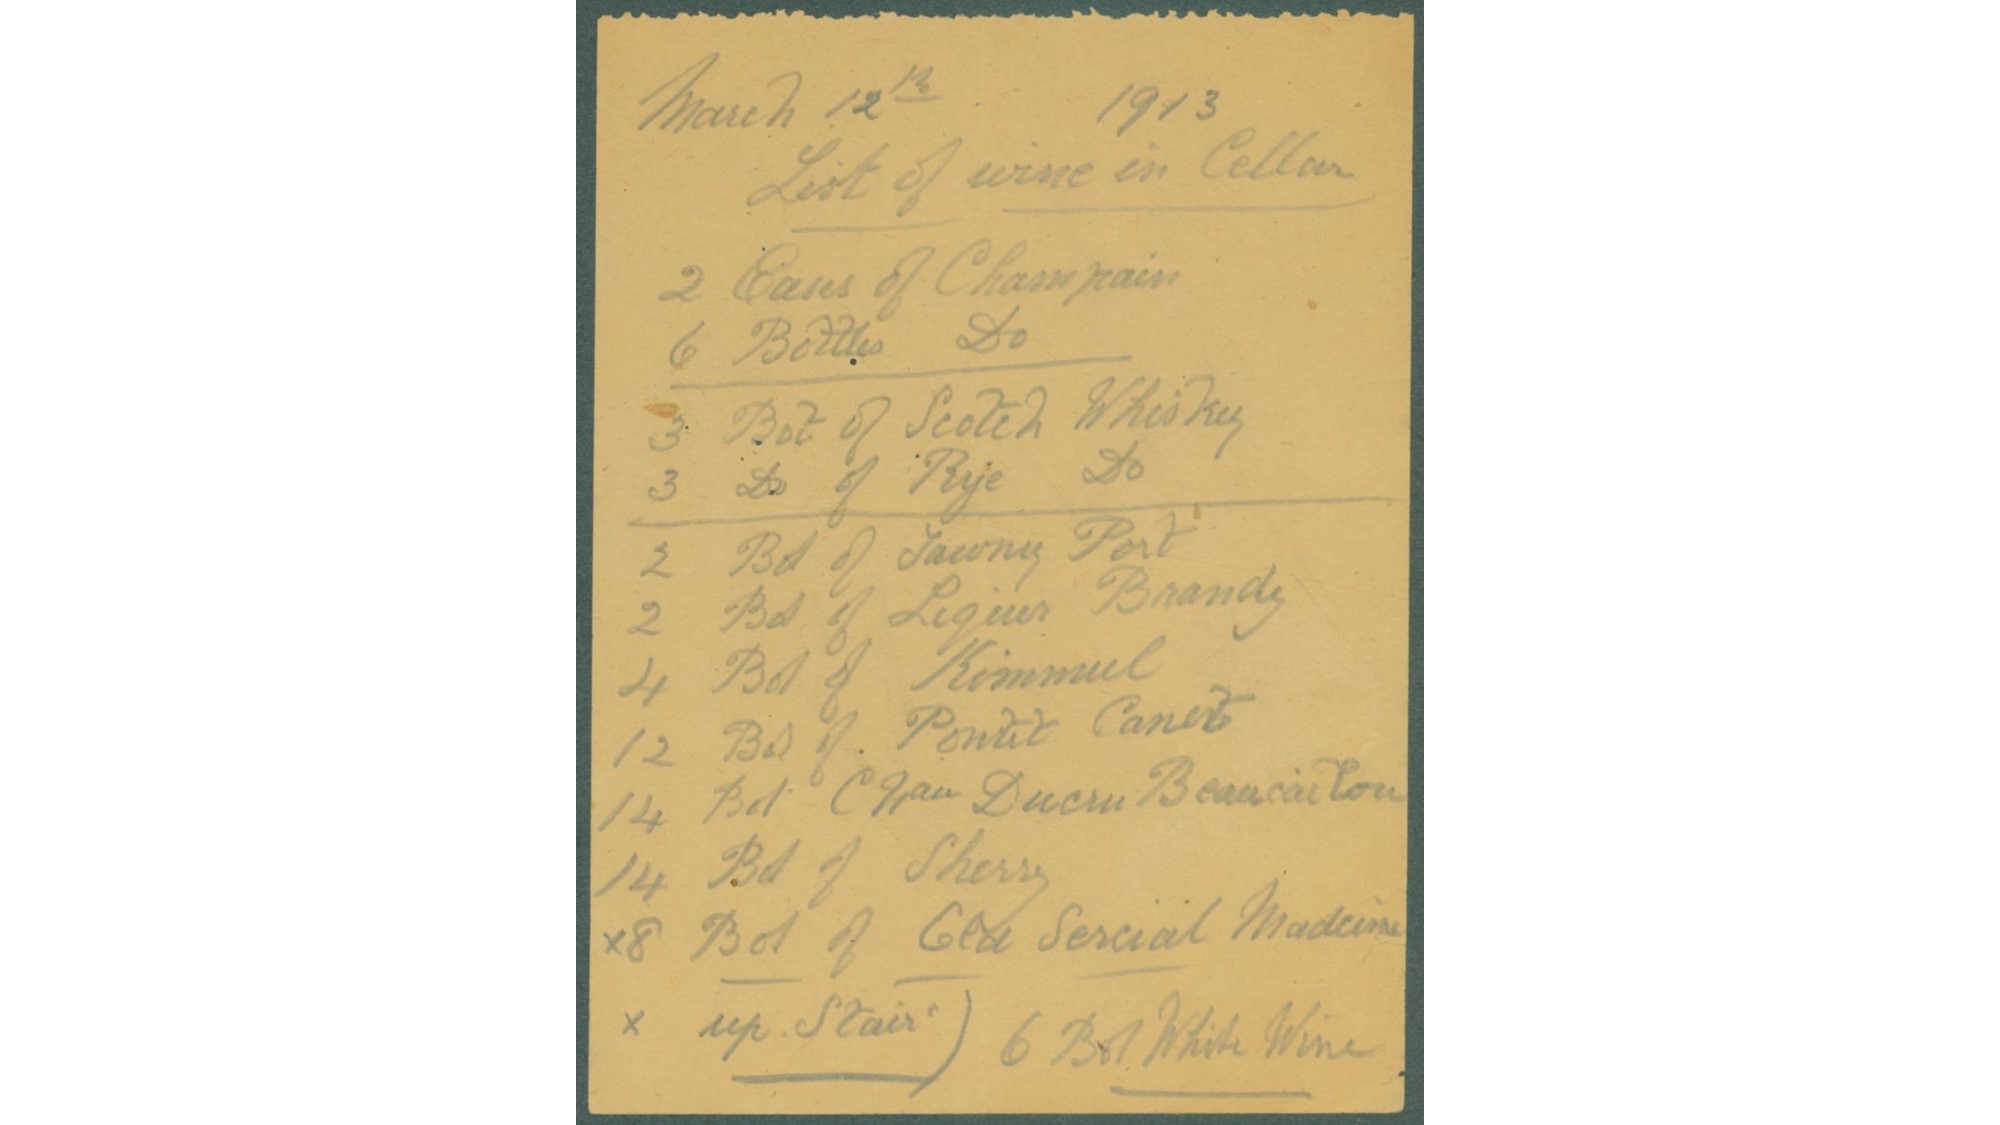 March 12th 1913
List of wine in Cellar
2 Cases of Champain
6 Bottles Do
3 Bot of Scotch Whiskey
3 Do of Rye Do
2 Bot of Tawny Port
2 Bot of Liqiur Brandy
4 Bot of Kimmul
12 Bot of Pontit Canet
14 Bot Chau Ducru Beaucaillou
14 Bot of Sherry
x8 Bot of Old Sercial Madeira
x up Stair)
6 Bot White Wine